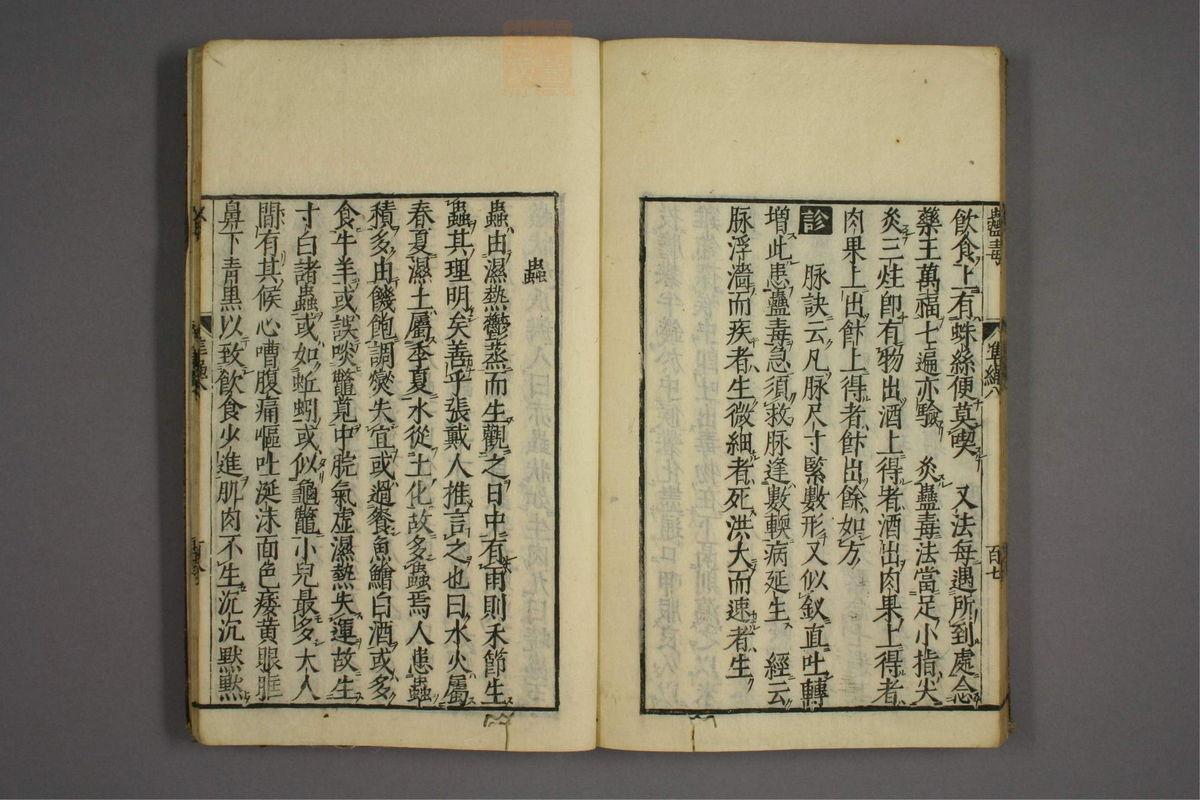 蠱毒
百七
飲食上有蛛絲便莫喫　又法每遇所到處念
藥王萬福七遍亦驗　灸蠱毒法當足小指尖
灸三炷卽有物出酒上得者酒出肉果上得者
肉果上出飰上得者飰出餘如方
診　脉訣云凡脉尺寸緊數形又似釵直吐轉
増此患蠱毒急須救脉逢數輭病延生　經云
脉浮濇而疾者生微細者死洪大而速者生
蟲
蟲由濕熱鬱蒸而生觀之日中有雨則禾節生
蟲其理明矣善乎張戴人推言之也曰水火屬
春夏濕土屬季夏水從土化故多蟲焉人患蟲
積多由饑飽調爕失宜或過餐魚鱠白酒或多
食牛羊或誤啖鼈莧中脘氣虛濕熱失運故生
寸白諸蟲或如蚯蚓或似龜鼈小兒最多大人
間有其候心嘈腹痛嘔吐涎沫面色痿黄眼眶
鼻下青黒以致飲食少進肌肉不生沉沉默默